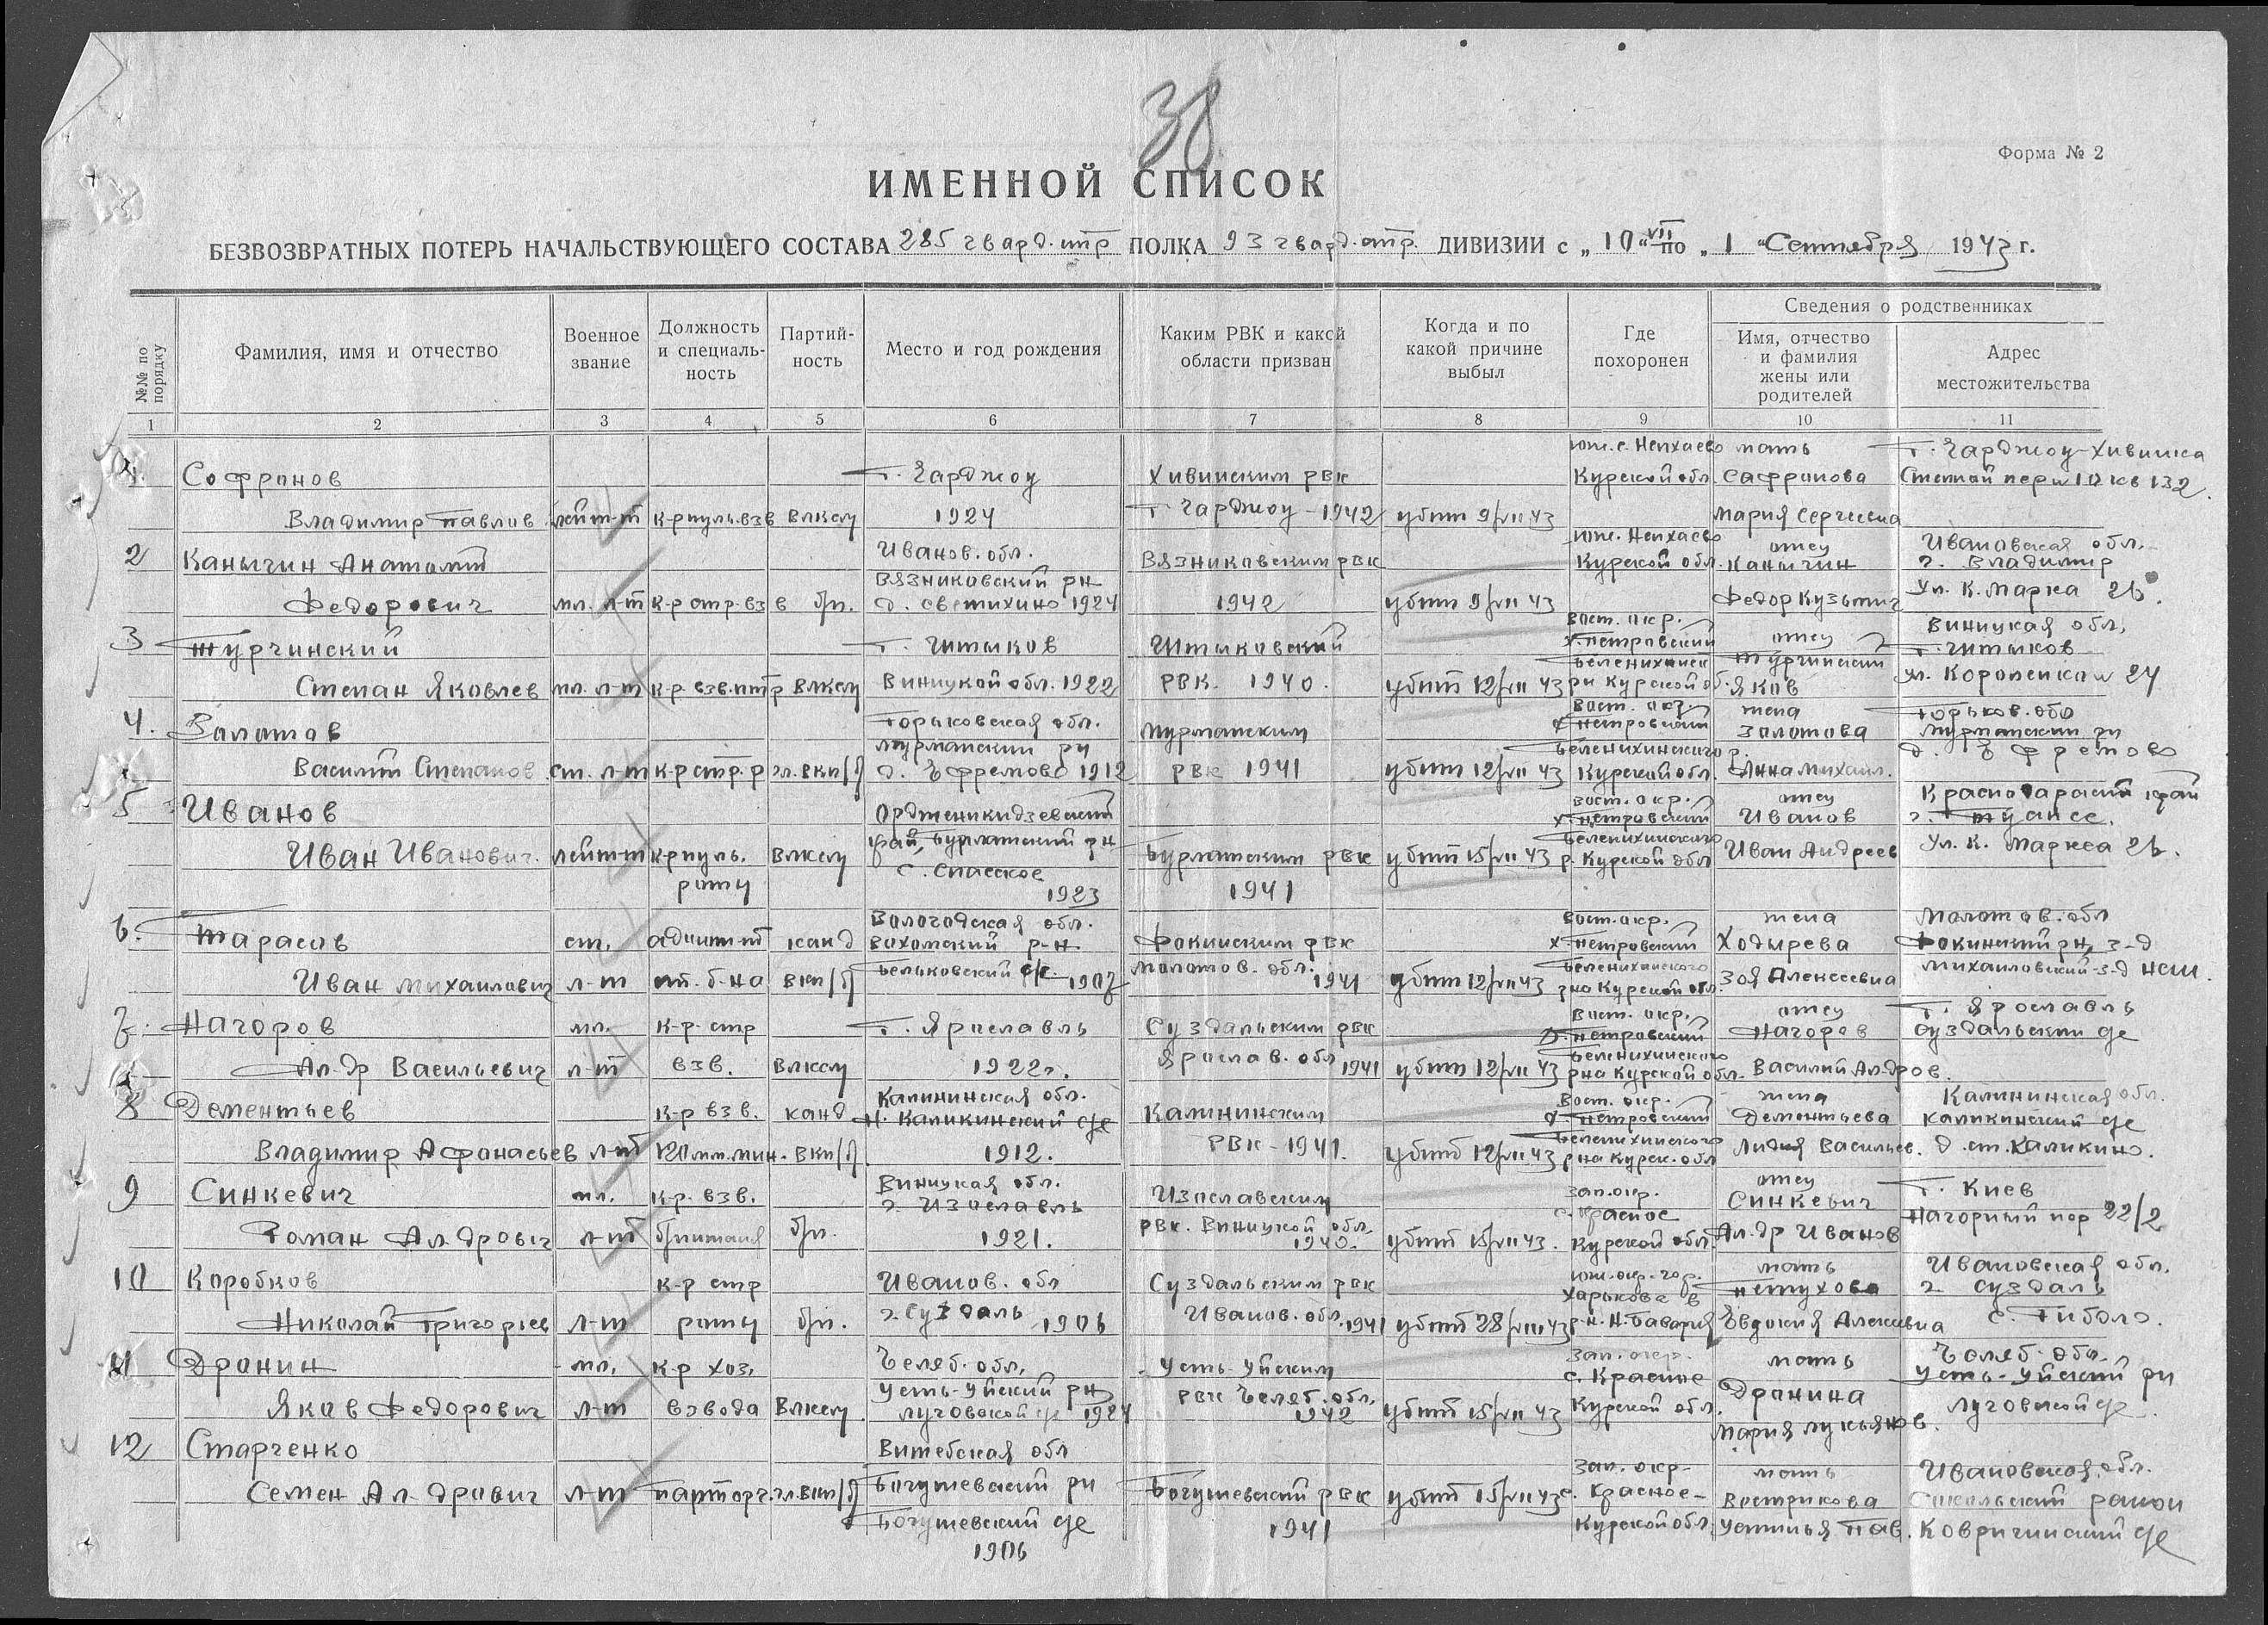 38
Форма № 2
ИМЕННОЙ СПИСОК
БЕЗВОЗВРАТНЫХ ПОТЕРЬ НАЧАЛЬСТВУЮЩЕГО СОСТАВА 285 гвард. стр ПОЛКА 93 гвард. стр. ДИВИЗИИ с „10“ VII по „1“ Сентября 1943 г.
№№ по порядку
Фамилия, имя и отчество
Военное звание
Должность и специальность
Партийность
Место и год рождения
Каким РВК и какой области призван
Когда и по какой причине выбыл
Где похоронен
Сведения о родственниках
Имя, отчество и фамилия жены или родителей
Адрес местожительства
1 2 3 4 5 6 7 8 9 10 11
юж. с. Непхаево мать г. Чарджоу-Хивинка
1 Софронов г. Чарджоу Хивинским РВК Курской обл. Сафронова Степной пер № 10 кв 132.
Владимир Павлов. лейт-т к-р пуль. взв ВЛКСМ 1924 г. Чарджоу-1942 убит 9/VII 43 Мария Сергеевна
2 Каныгин Анатолий Иванов. обл. Вязниковским РВК юж. Непхаево Курской обл. отец Каныгин Ивановская обл. г. Владимир
Федорович мл. л-т к-р стр. взв б/п. Вязниковский рн д. Светихино 1924 1942 убит 9/VII 43 Федор Кузьмич Ул. К. Марка 26.
3 Турчинский г. Литыков Литыковский вост. окр. х. Петровский отец Турчинский Виницкая обл, г. Литыков
Степан Яковлев мл. л-т к-р. взв. птр ВЛКСМ Виницкой обл. 1922 РВК. 1940. убит 12/VII 43 Беленихинск рн Курской об. Яков ул. Короленко № 24
4. Золотов Горьковская обл. Мурманским вост. окр. х Петровский жена Золотова Горьков. обл Мурманский рн
Василий Степанов. ст. л-т к-р стр. р чл. ВКП/б Мурманский рн д. Ефремово 1912 РВК 1941 убит 12/VII 43 Беленихинского р. Курской обл. Анна Михаил. д. Ефремово
5 Иванов Орджоникидзевский вост. окр. х. Петровский отец Иванов Краснодарский край г. Туапсе.
Иван Иванович. лейт-т к-р пуль. роты ВЛКСМ край, Бурлатский рн с. Спасское 1923 Бурлатским РВК 1941 убит 15/VII 43 Беленихинского р. Курской обл Иван Андреев Ул. К. Маркса 26.
6. Тарасов ст. адъют-т канд Вологодская обл. Вохомский р-н. Фокинским РВК вост. окр. х. Петровский жена Ходырева Молотов. обл Фокинский рн, з-д
Иван Михаилович л-т б-на ВКП/б Бельковский с/с. 1907 Молотов. обл. 1941 убит 12/VII 43 Беленихинского рна Курской обл. Зоя Алексеевна Михаиловский з-д
7. Нагоров мл. к-р. стр г. Ярославль Суздальским РВК Вост. окр. х. Петровский отец Нагоров г. Ярославль Суздальский с/с
Ал-др Васильевич л-т взв. ВЛКСМ 1922 г. Ярослав. обл 1941 убит 12/VII 43 Беленихинского рна Курской обл. Василий Ал-дров.
8 Дементьев к-р взв. канд Калининская обл. Н. Каликинский с/с Калининским Вост. окр. х. Петровский жена Дементьева Калининская обл. Каликинский с/с
Владимир Афонасьев л-т 120 мм. мин. ВКП/б 1912. РВК-1941. убит 12/VII 43 Беленихинского рна Курск. обл Лидия Васильев. д. ст. Каликино.
9 Синкевич мл. к-р. взв. Виницкая обл. г. Изяславль Изяславским зап. окр. с. Красное отец Синкевич г. Киев
Роман Ал-дрович л-т б/питания б/п. 1921. РВК. Виницкой обл. 1940. убит 15/VII 43. Курской обл. Ал-др Иванов Нагорный пер 22/2
10 Коробков к-р стр Иванов. обл Суздальским РВК юж. окр. гор. Харькова в мать Петухова Ивановская обл. г. Суздаль
Николай Григорьев л-т роты б/п. г. Суздаль 1906 Иванов. обл. 1941 убит 28/VIII 43 р-н. Н. Бавария Евдокия Алексевна с. Гиболо.
11 Дронин мл. к-р хоз. Челяб. обл, Усть-Уйским зап. окр. с. Красное мать Челяб. обл. Усть-Уйский рн
Яков Федорович л-т взвода ВЛКСМ Усть-Уйский рн Луговской с/с 1924 РВК Челяб. обл. 1942 убит 15/VII 43 Курской обл. Дронина Мария Лукьянов. Луговской с/с
12 Старченко Витебская обл зап. окр. мать Ивановская обл.
Семен Ал-дрович л-т парторг. чл. ВКП/б Богушевский рн Богушевский РВК убит 15/VII 43 с. Красное- Вострикова Сокольский район
Богушевский с/с 1906 1941 Курской обл. Устинья Пав. Ковригинский с/с